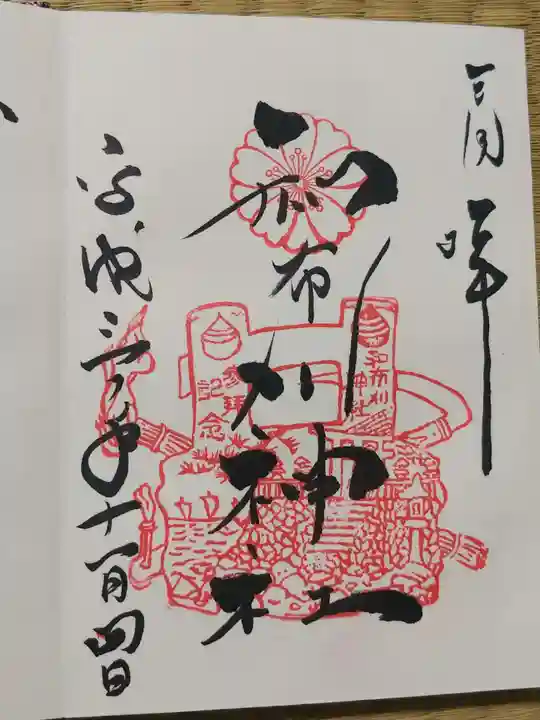 拝
和布刈神社
和布刈神社
参拝記念
平成三十年十一月四日